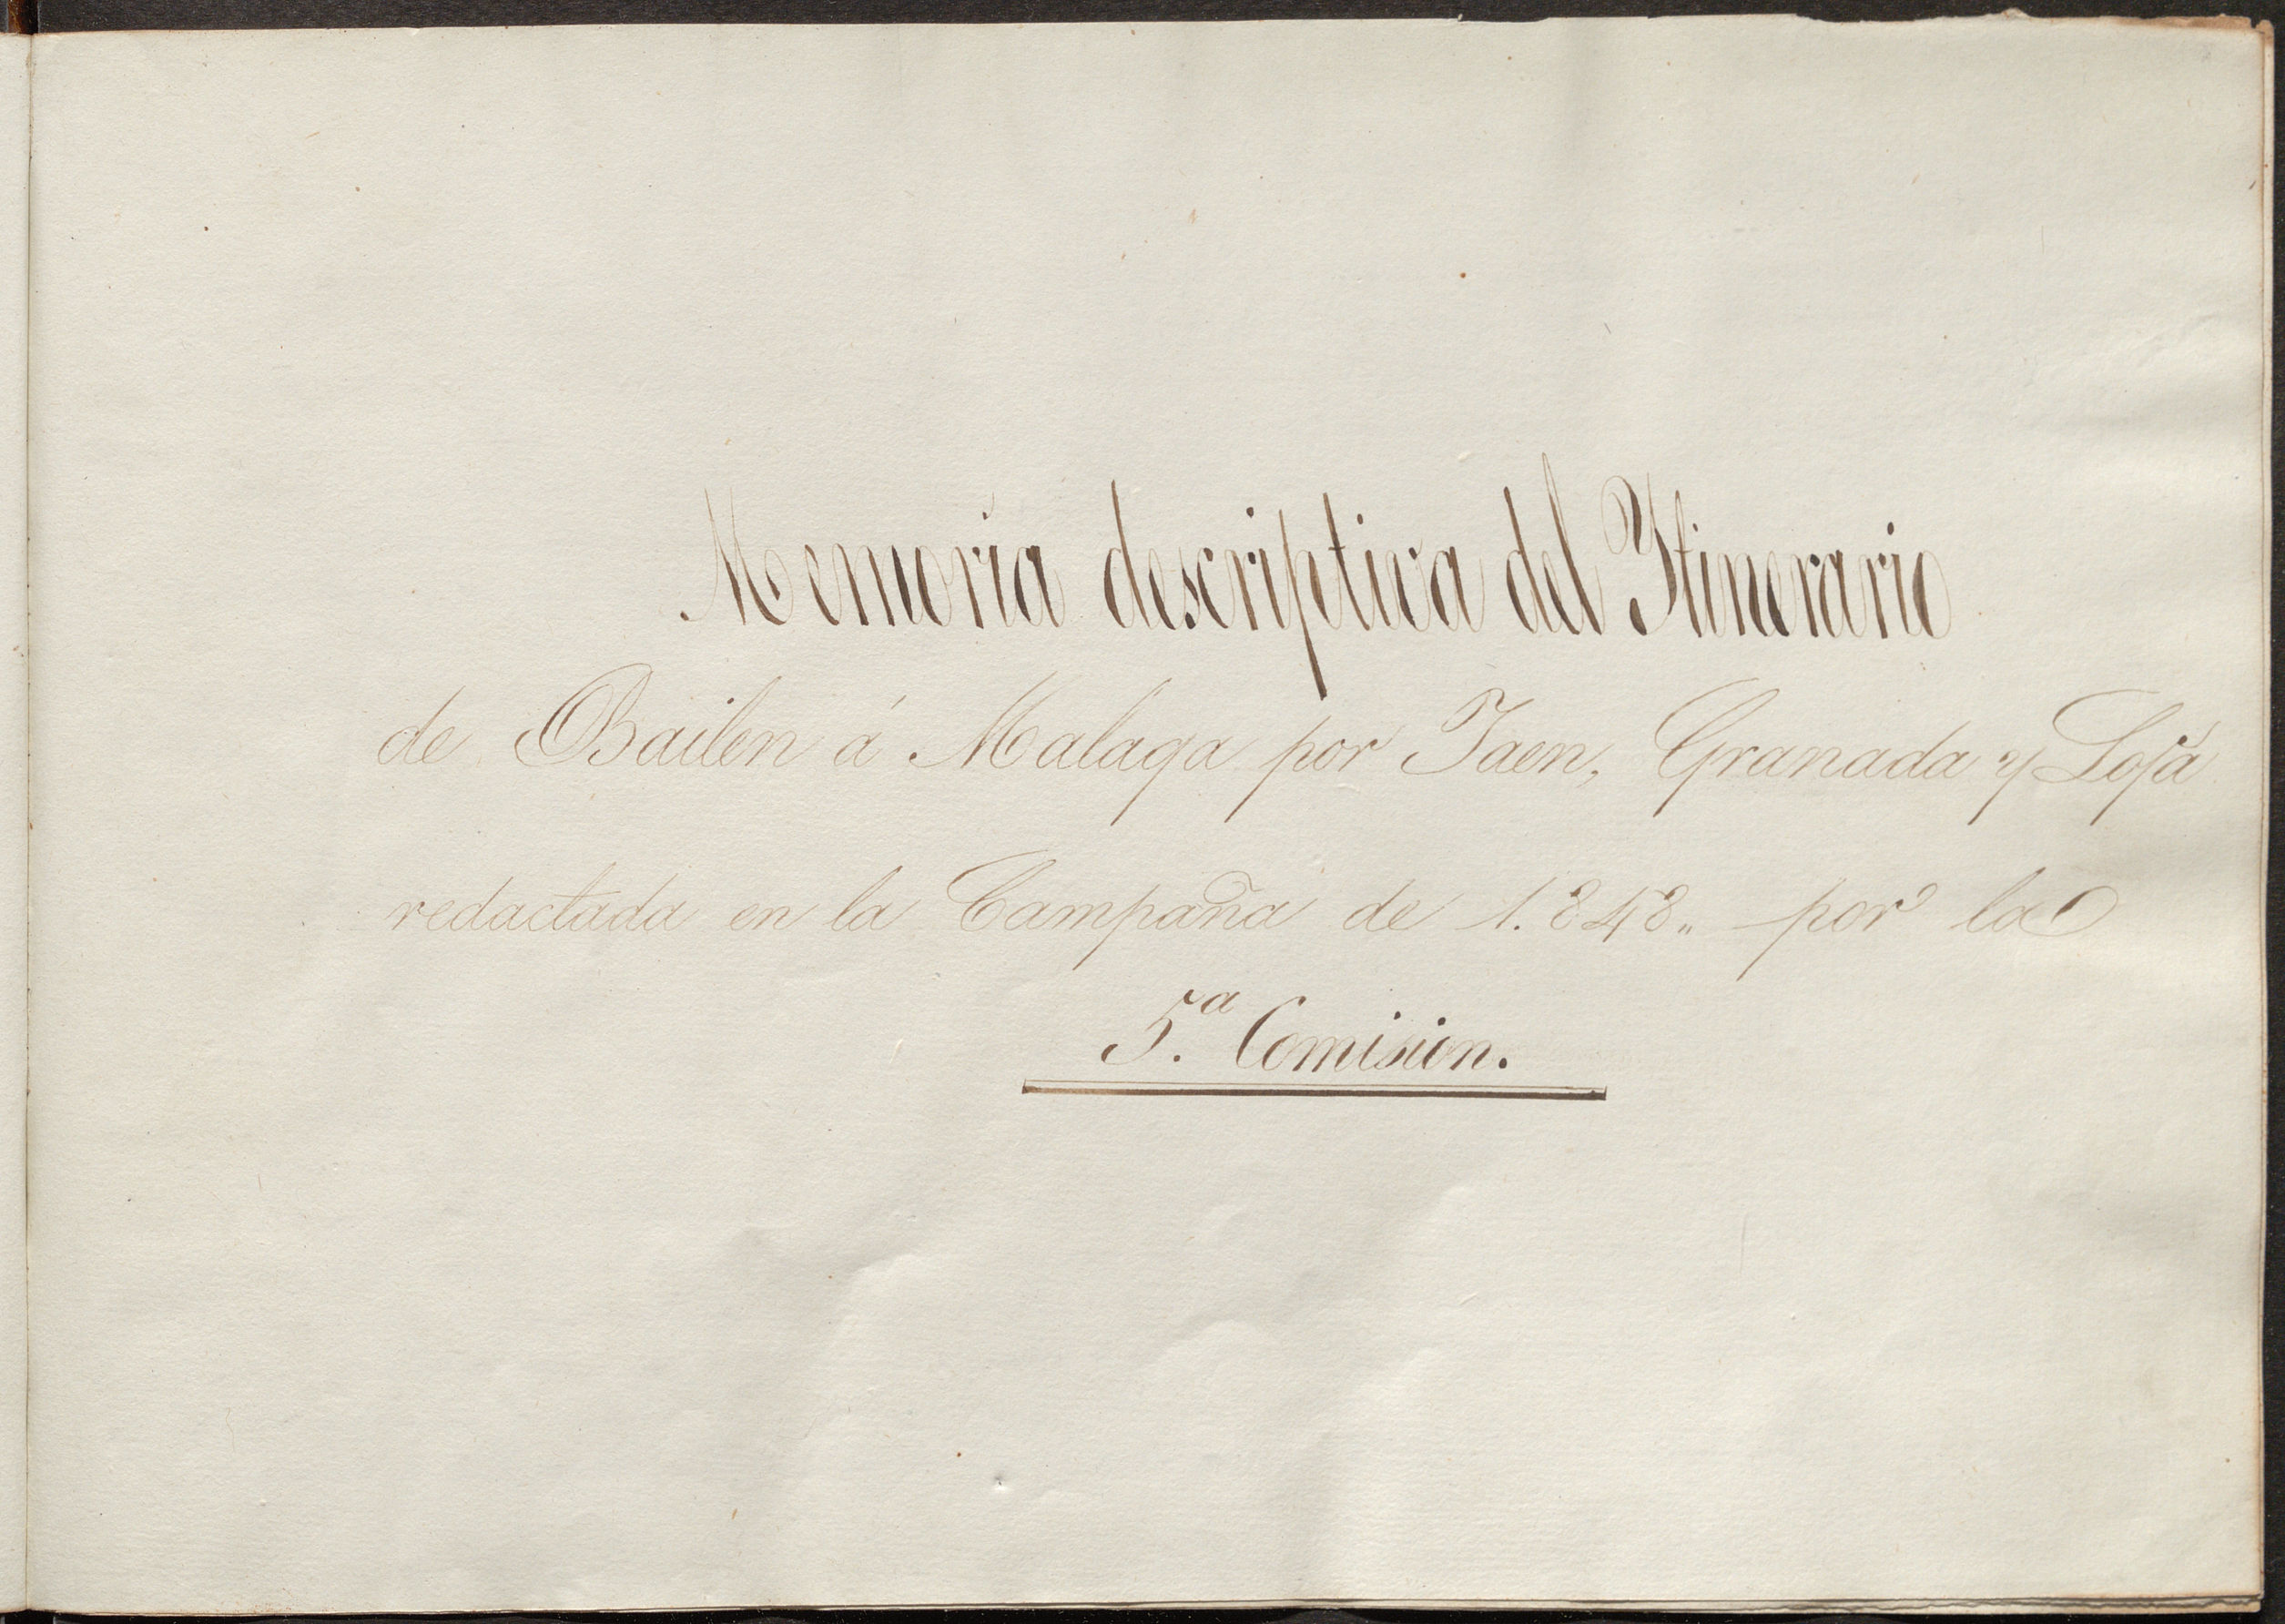 Memoria descriptiva del Ytinerario
de Bailen á Malaga por Jaen, Granada y Loja
redactada en la Campaña de 1.848.. por la
5.ª Comision.